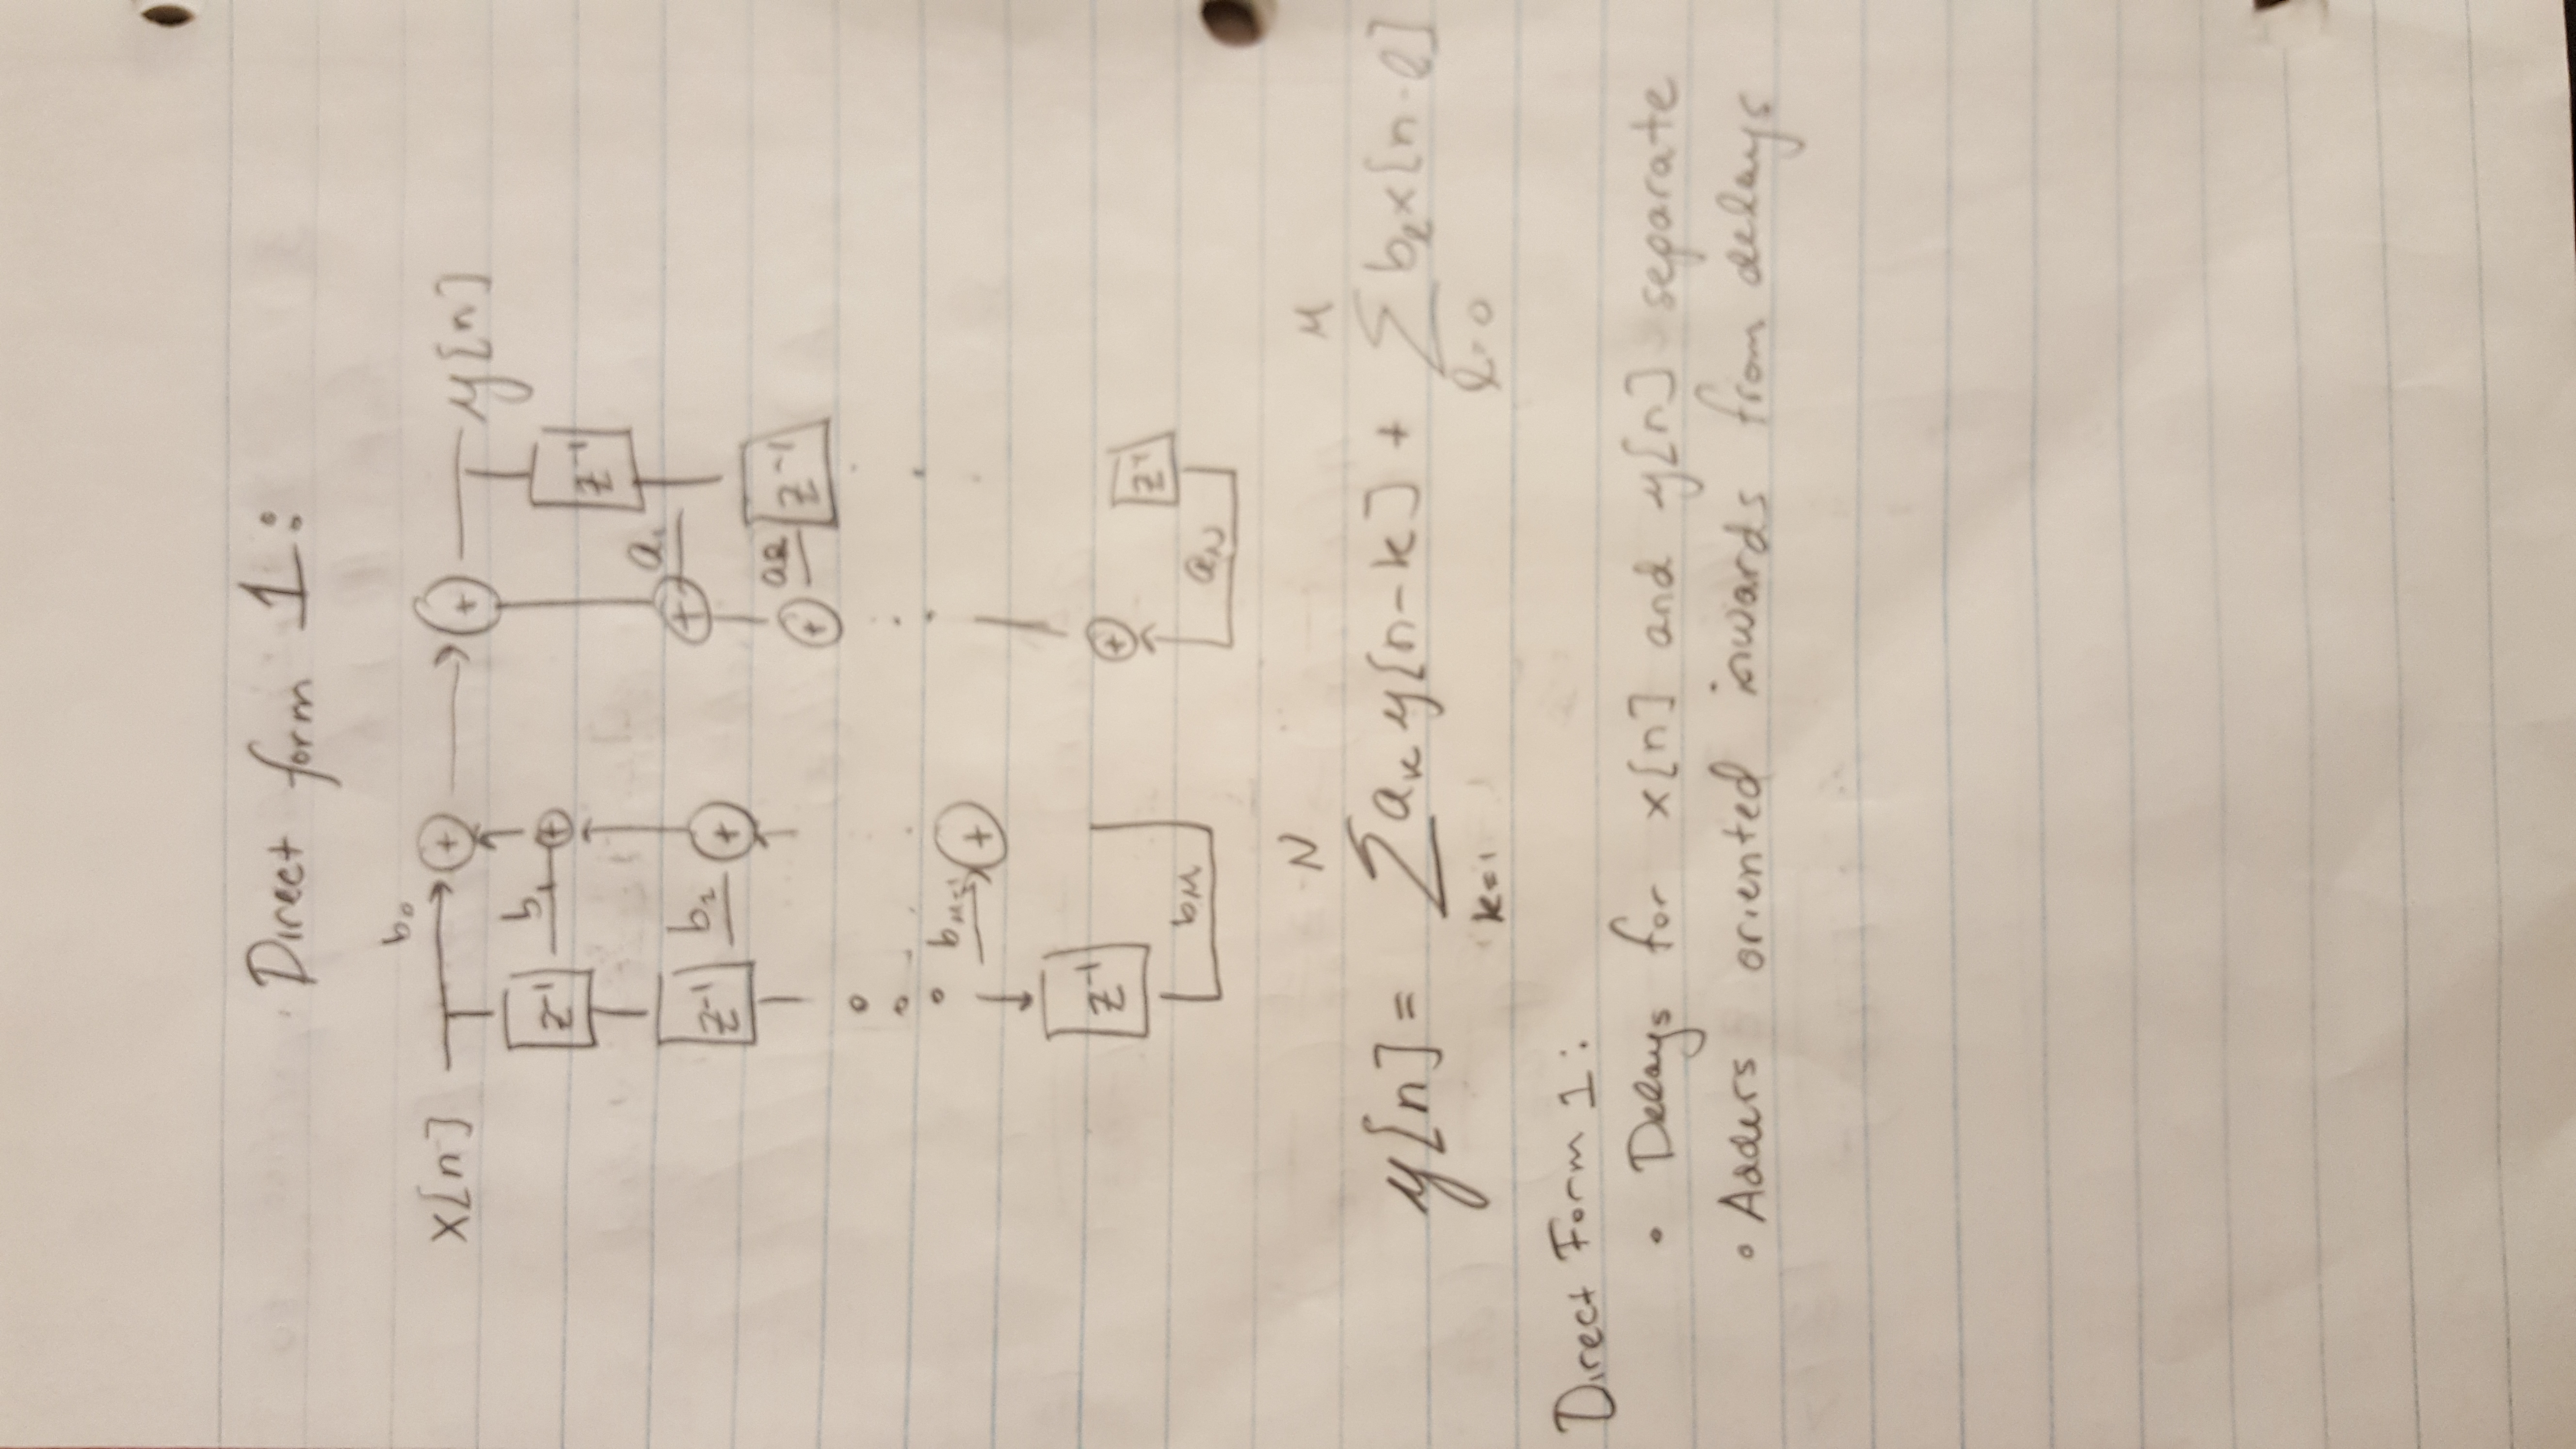 Direct form 1:
b₀
x[n] + + y[n]
z⁻¹ b₁ + z⁻¹
a₁
z⁻¹ b₂ + +
a₂
+ z⁻¹
bₘ₋₁
+
z⁻¹
+ z⁻¹
bₘ aₙ
N M
y[n] = Σ aₖ y[n-k] + Σ bₗ x[n-l]
k=1 l=0
Direct Form 1:
• Delays for x[n] and y[n] separate
• Adders oriented inwards from delays